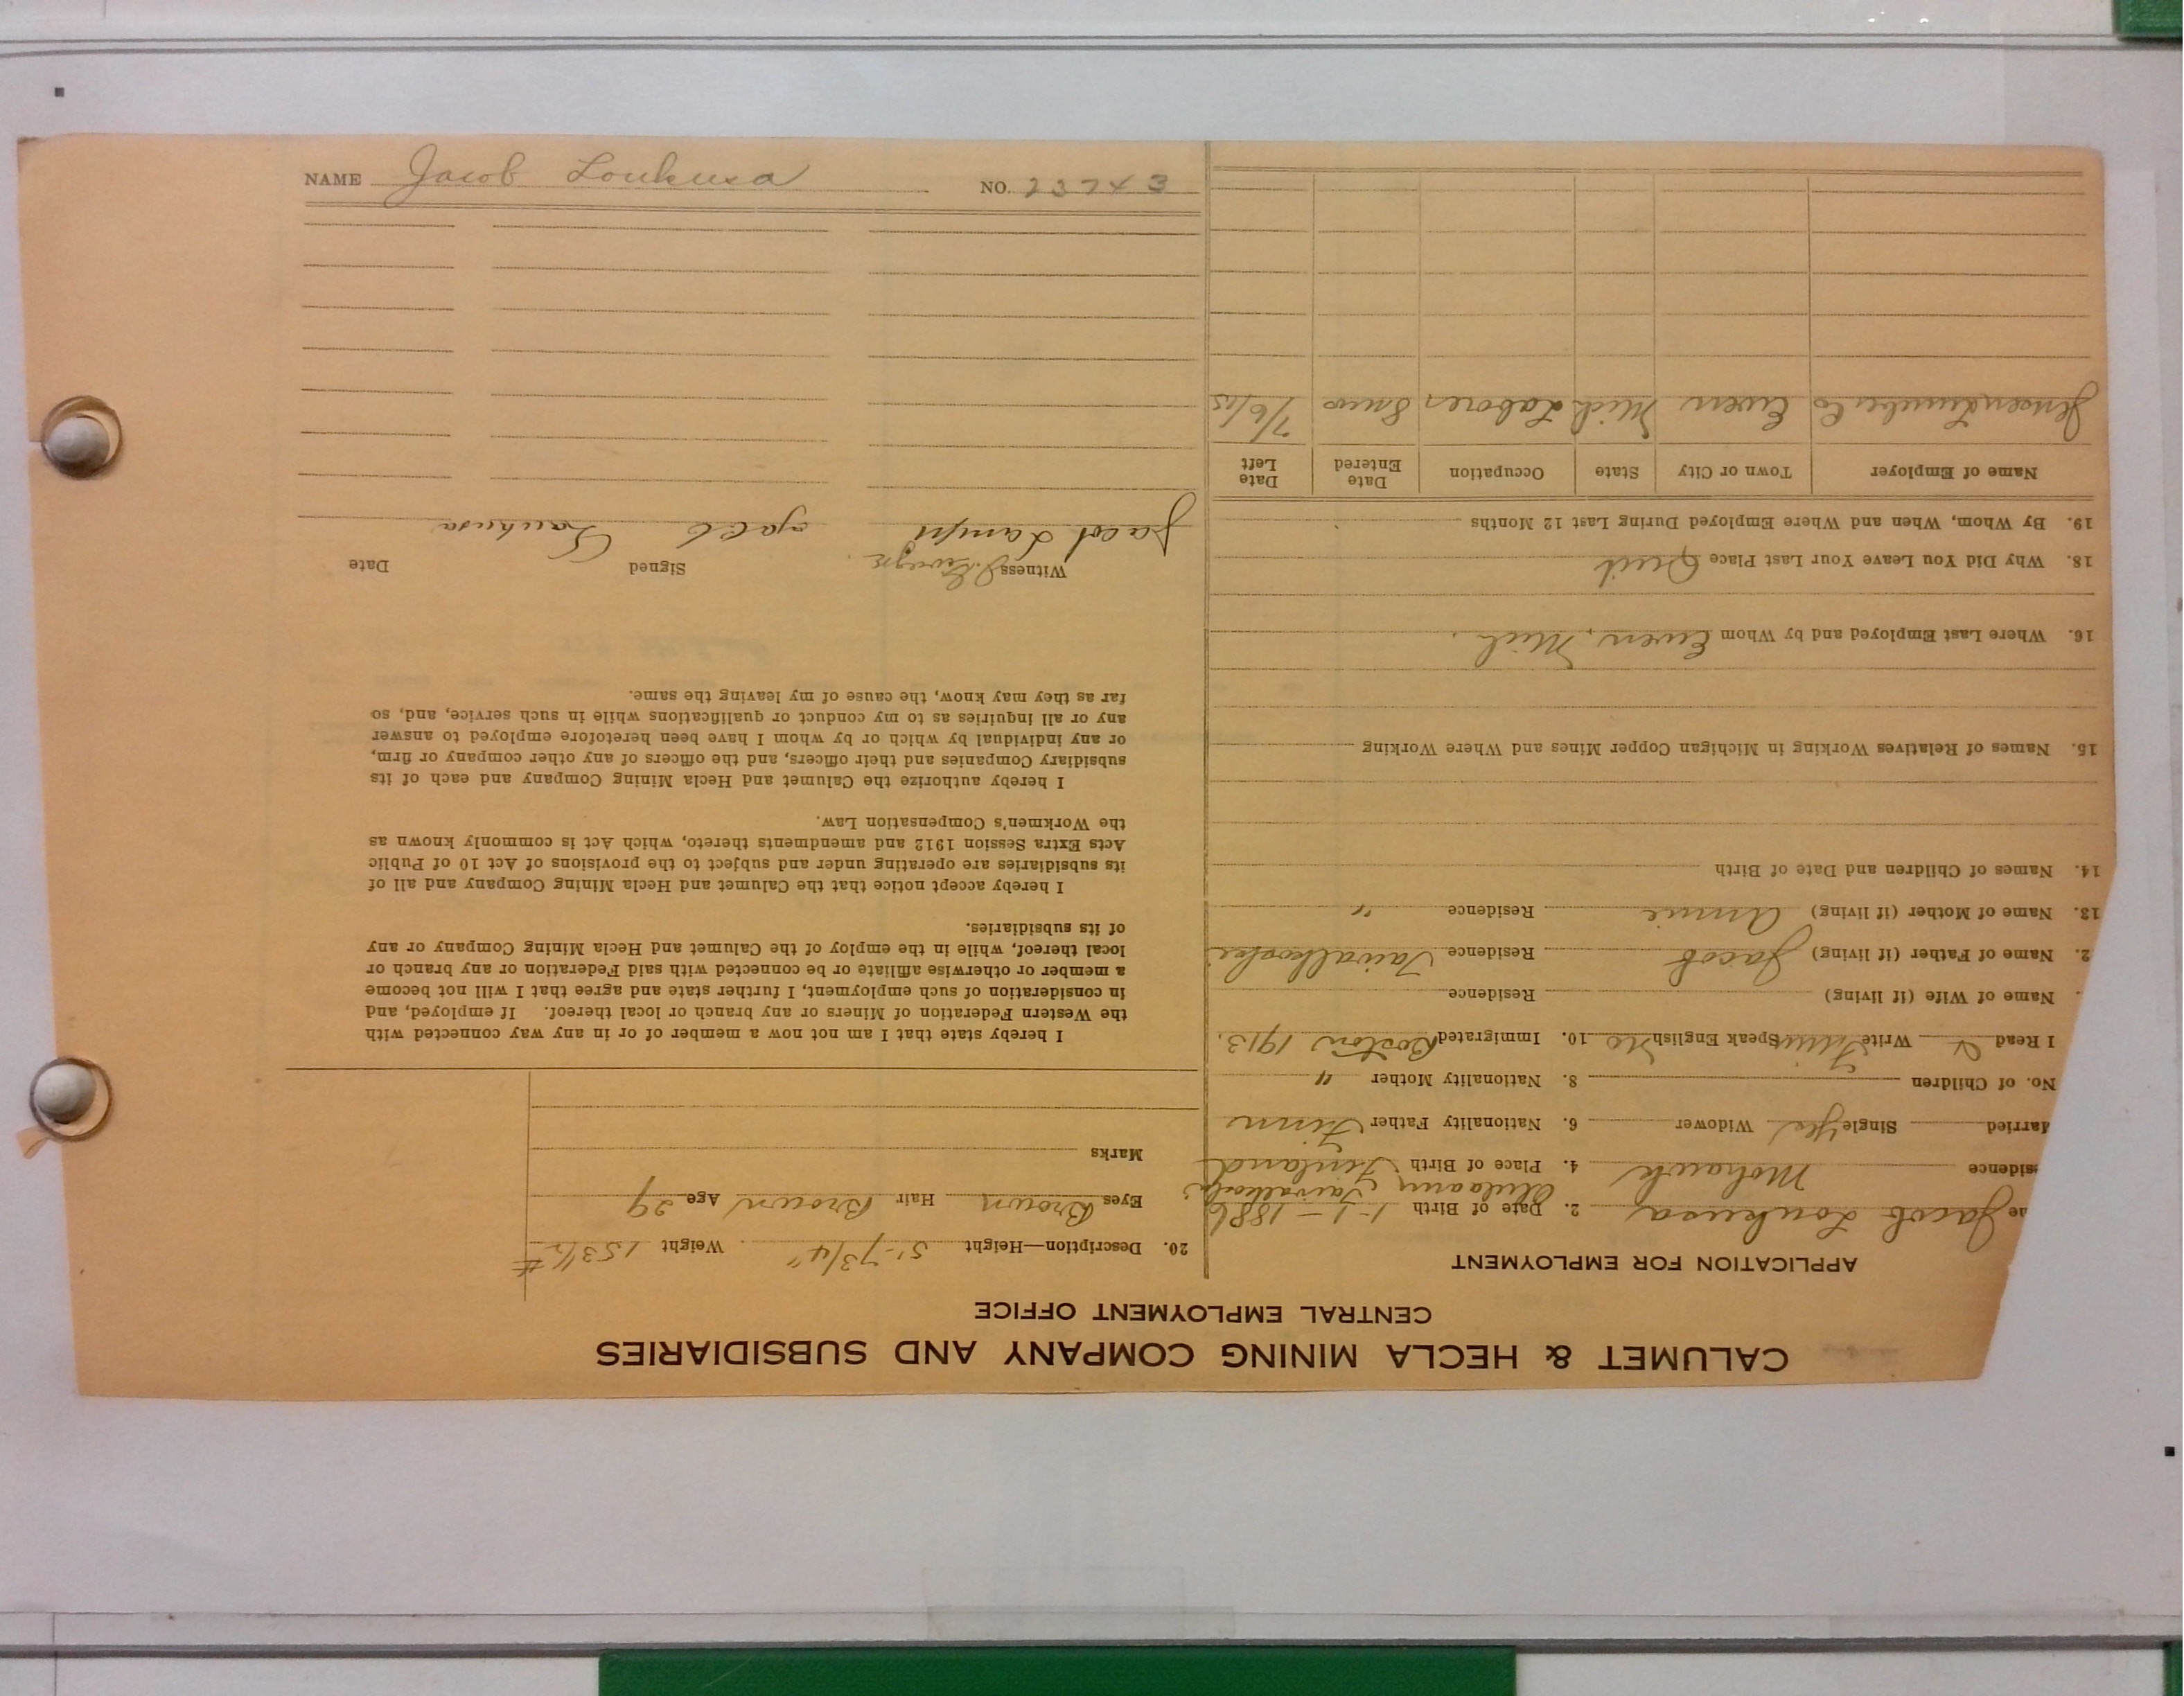 NAME Jacob Loukusa NO. 23743
CALUMET & HECLA MINING COMPANY AND SUBSIDIARIES
CENTRAL EMPLOYMENT OFFICE
APPLICATION FOR EMPLOYMENT
me Jacob Loukusa 2. Date of Birth 1-1-1886
esidence Mohawk 4. Place of Birth Finland Taivalkoski
Married Single Yes Widower 6. Nationality Father Finn
No. of Children 8. Nationality Mother "
I Read Write Finn Speak English No 10. Immigrated Boston 1913.
. Name of Wife (if living) Residence
2. Name of Father (if living) Jacob Residence Taivalkoski
13. Name of Mother (if living) Annie Residence "
14. Names of Children and Date of Birth
15. Names of Relatives Working in Michigan Copper Mines and Where Working
16. Where Last Employed and by Whom Ewen, Mich.
18. Why Did You Leave Your Last Place Quit
19. By Whom, When and Where Employed During Last 12 Months
Name of Employer Town or City State Occupation Date Entered Date Left
Jensen Lumber Co Ewen Mich Laborer 8 mos 7/6/15
20. Description—Height 5'-7 3/4" Weight 153 1/2 #
Eyes Brown Hair Brown Age 29
Marks
I hereby state that I am not now a member of or in any way connected with
the Western Federation of Miners or any branch or local thereof. If employed, and
in consideration of such employment, I further state and agree that I will not become
a member or otherwise affiliate or be connected with said Federation or any branch or
local thereof, while in the employ of the Calumet and Hecla Mining Company or any
of its subsidiaries.
I hereby accept notice that the Calumet and Hecla Mining Company and all of
its subsidiaries are operating under and subject to the provisions of Act 10 of Public
Acts Extra Session 1912 and amendments thereto, which Act is commonly known as
the Workmen's Compensation Law.
I hereby authorize the Calumet and Hecla Mining Company and each of its
subsidiary Companies and their officers, and the officers of any other company or firm,
or any individual by which or by whom I have been heretofore employed to answer
any or all inquiries as to my conduct or qualifications while in such service, and, so
far as they may know, the cause of my leaving the same.
Witness Signed Date
Jacob Lampi Jacob Loukusa